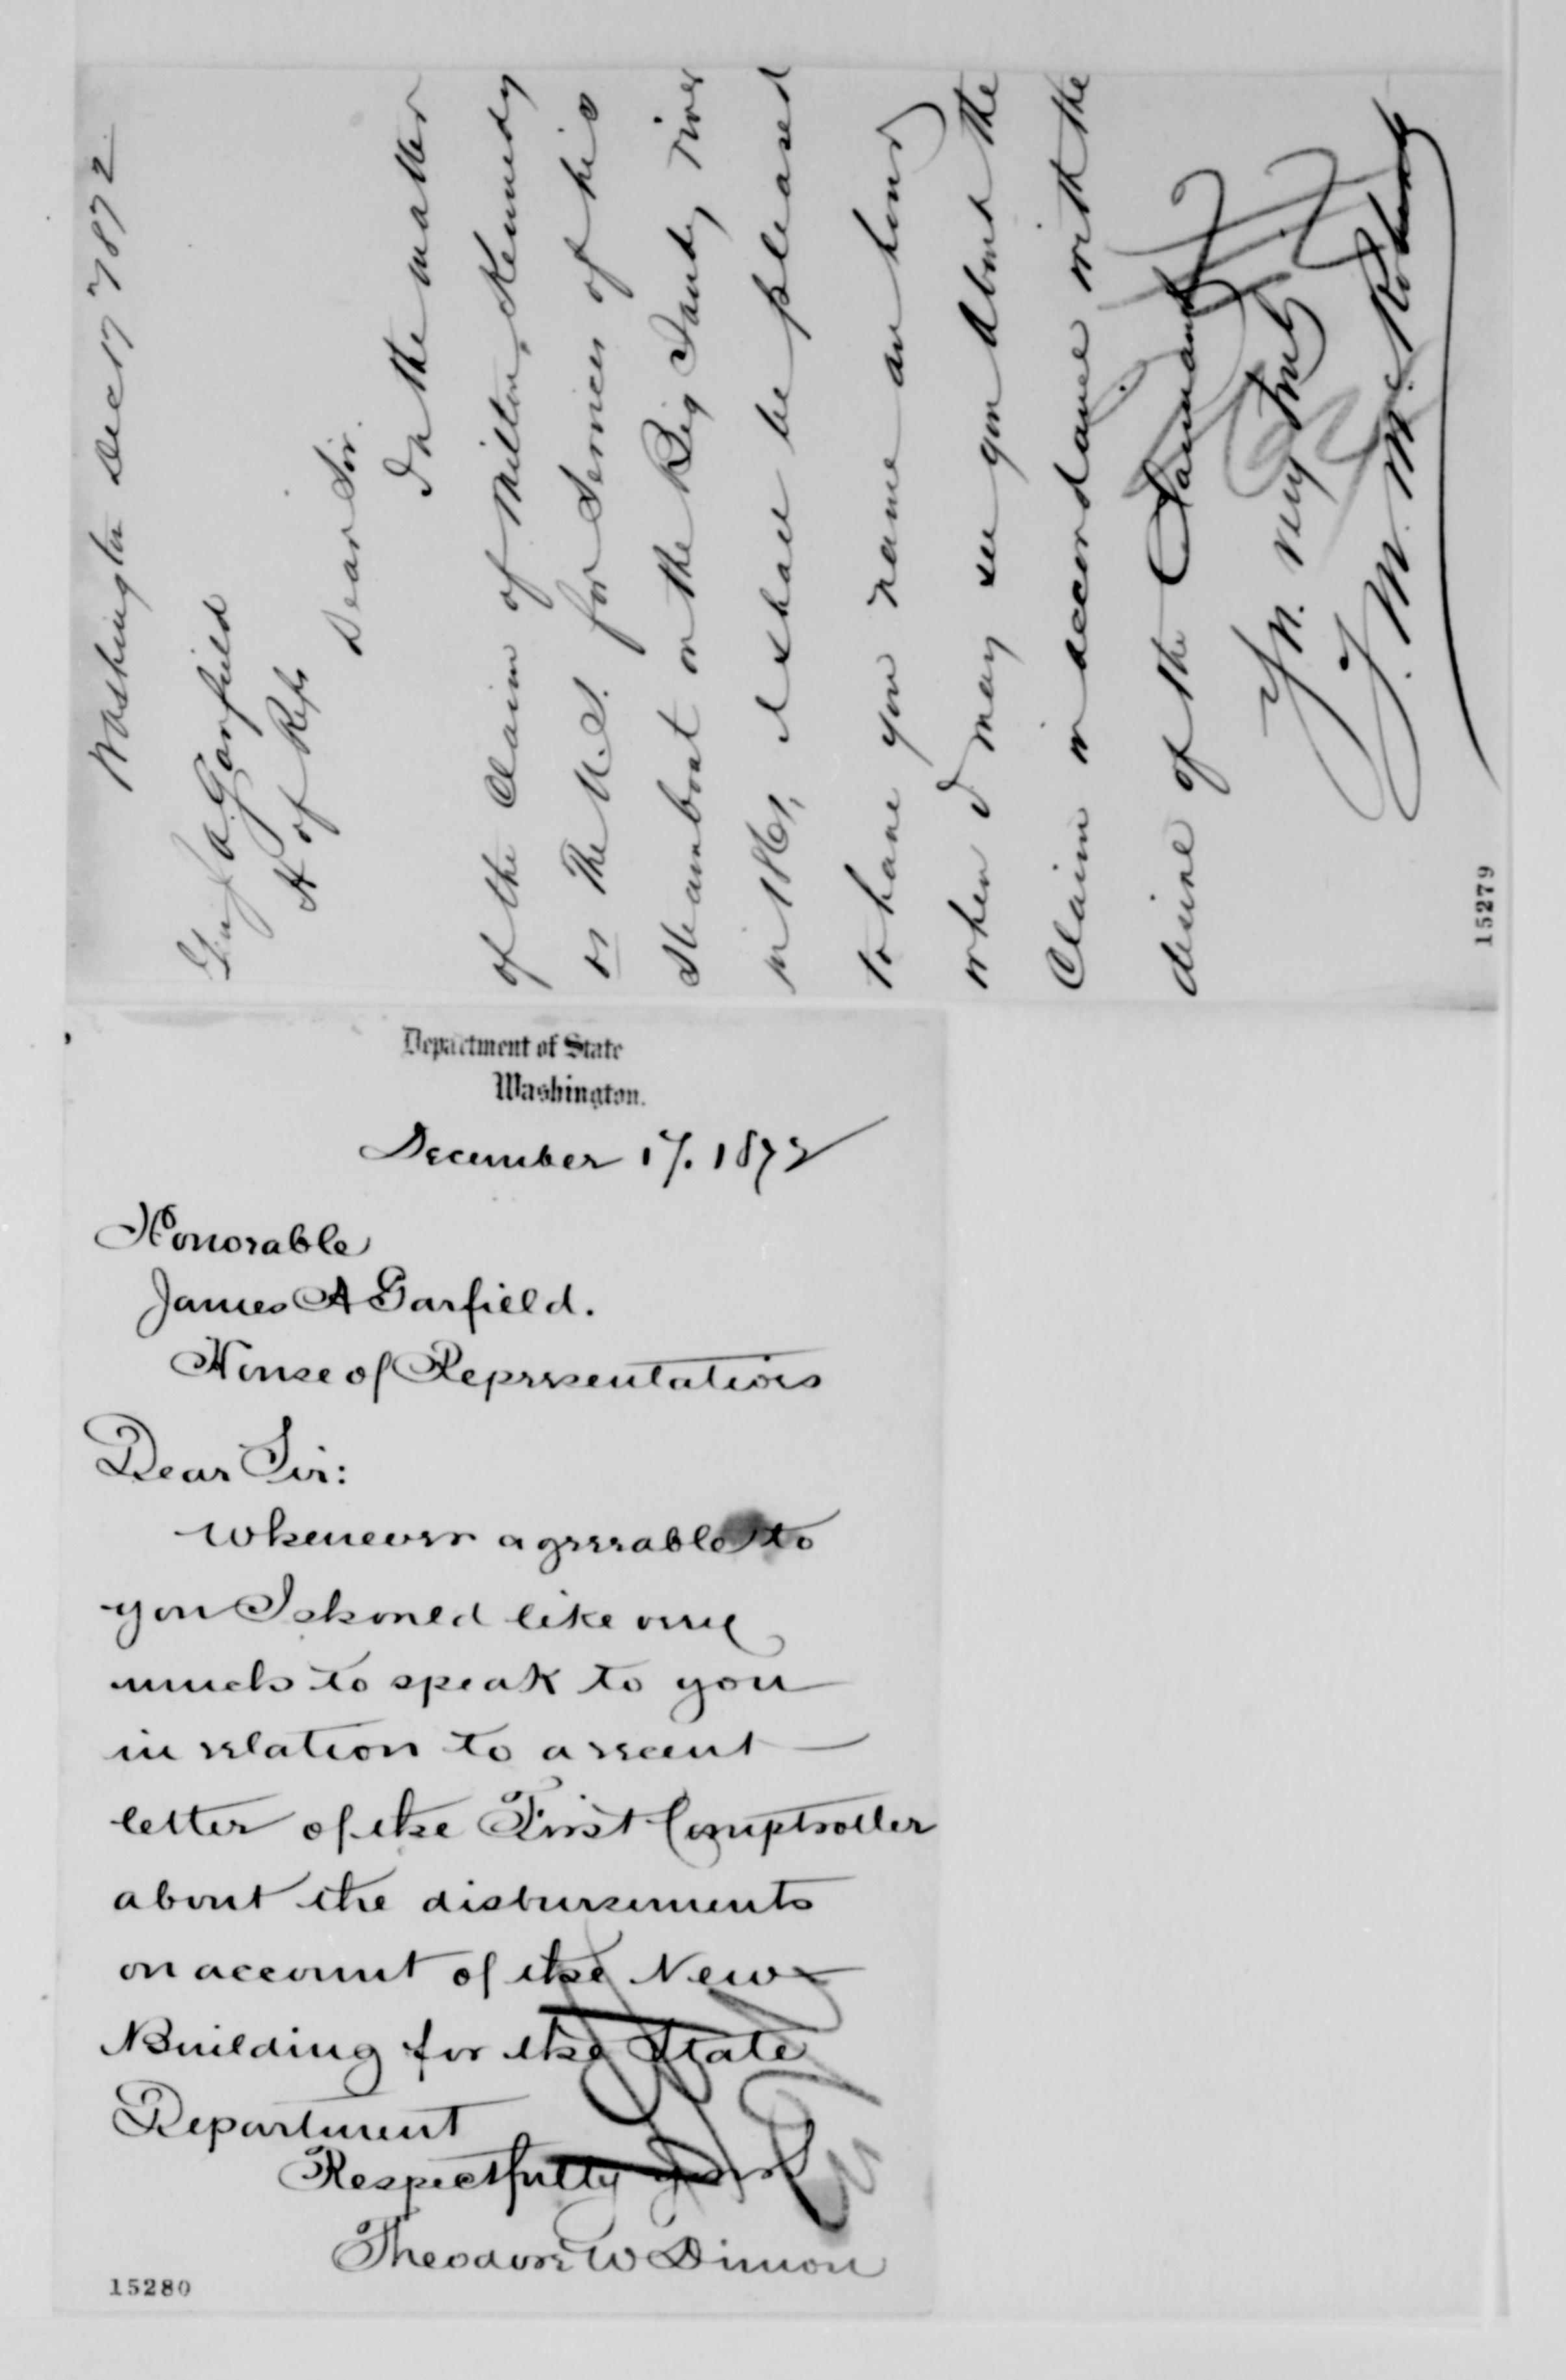 Washington Dec 17 1872
Gen J A Garfield
H of Reps
Dear Sir.
In the matter
of the Claim of Milton Kennedy
vs The U.S. for Services of his
Steamboat on the Big Sandy River
in 1861, I shall be pleased
to have you name an hour
when I may see you about the
Claim in accordance with the
desire of the Claimant
Yr. very truly
J. M. McRoberts
15279
Department of State
Washington.
December 17. 1872
Honorable
James A Garfield.
House of Representatives
Dear Sir:
Whenever agreeable to
you I should like very
much to speak to you
in relation to a recent
letter of the First Comptroller
about the disbursements
on account of the New
Building for the State
Department
Respectfully yours
Theodore W Dimon
15280